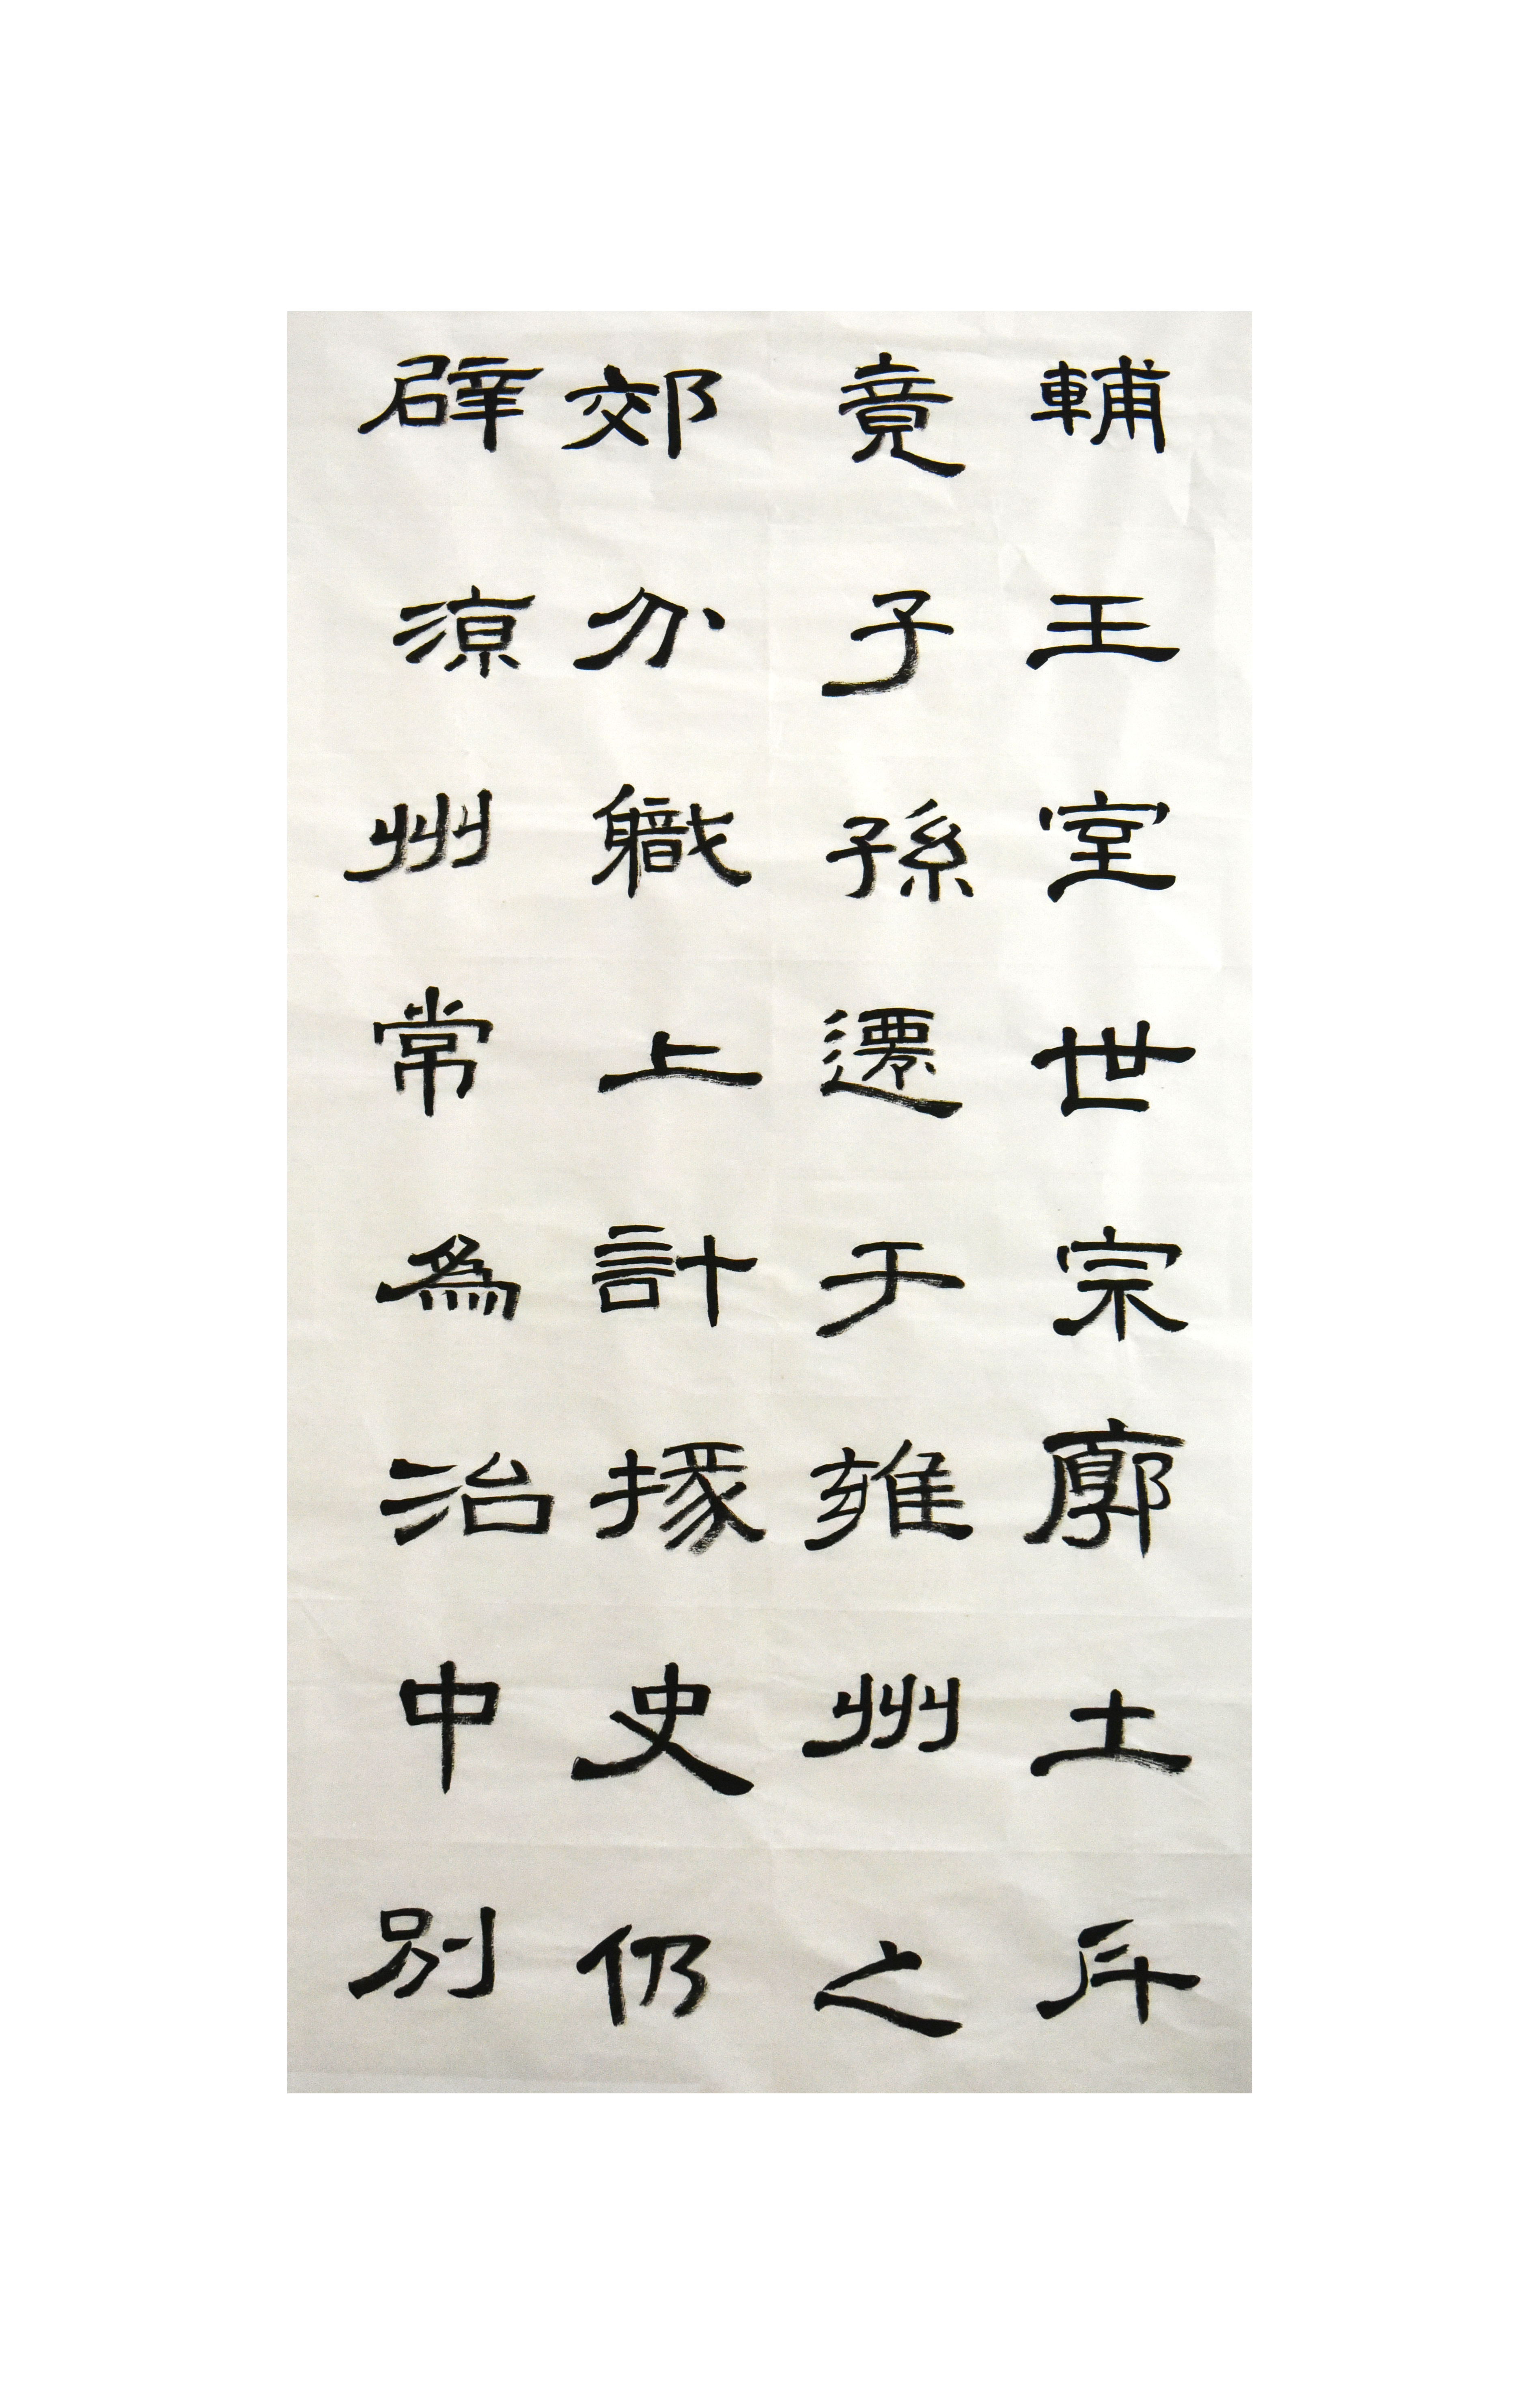 輔王室世宗廓土斥
竟子孫遷于雍州之
郊分職上計掾史仍
辟涼州常為治中別